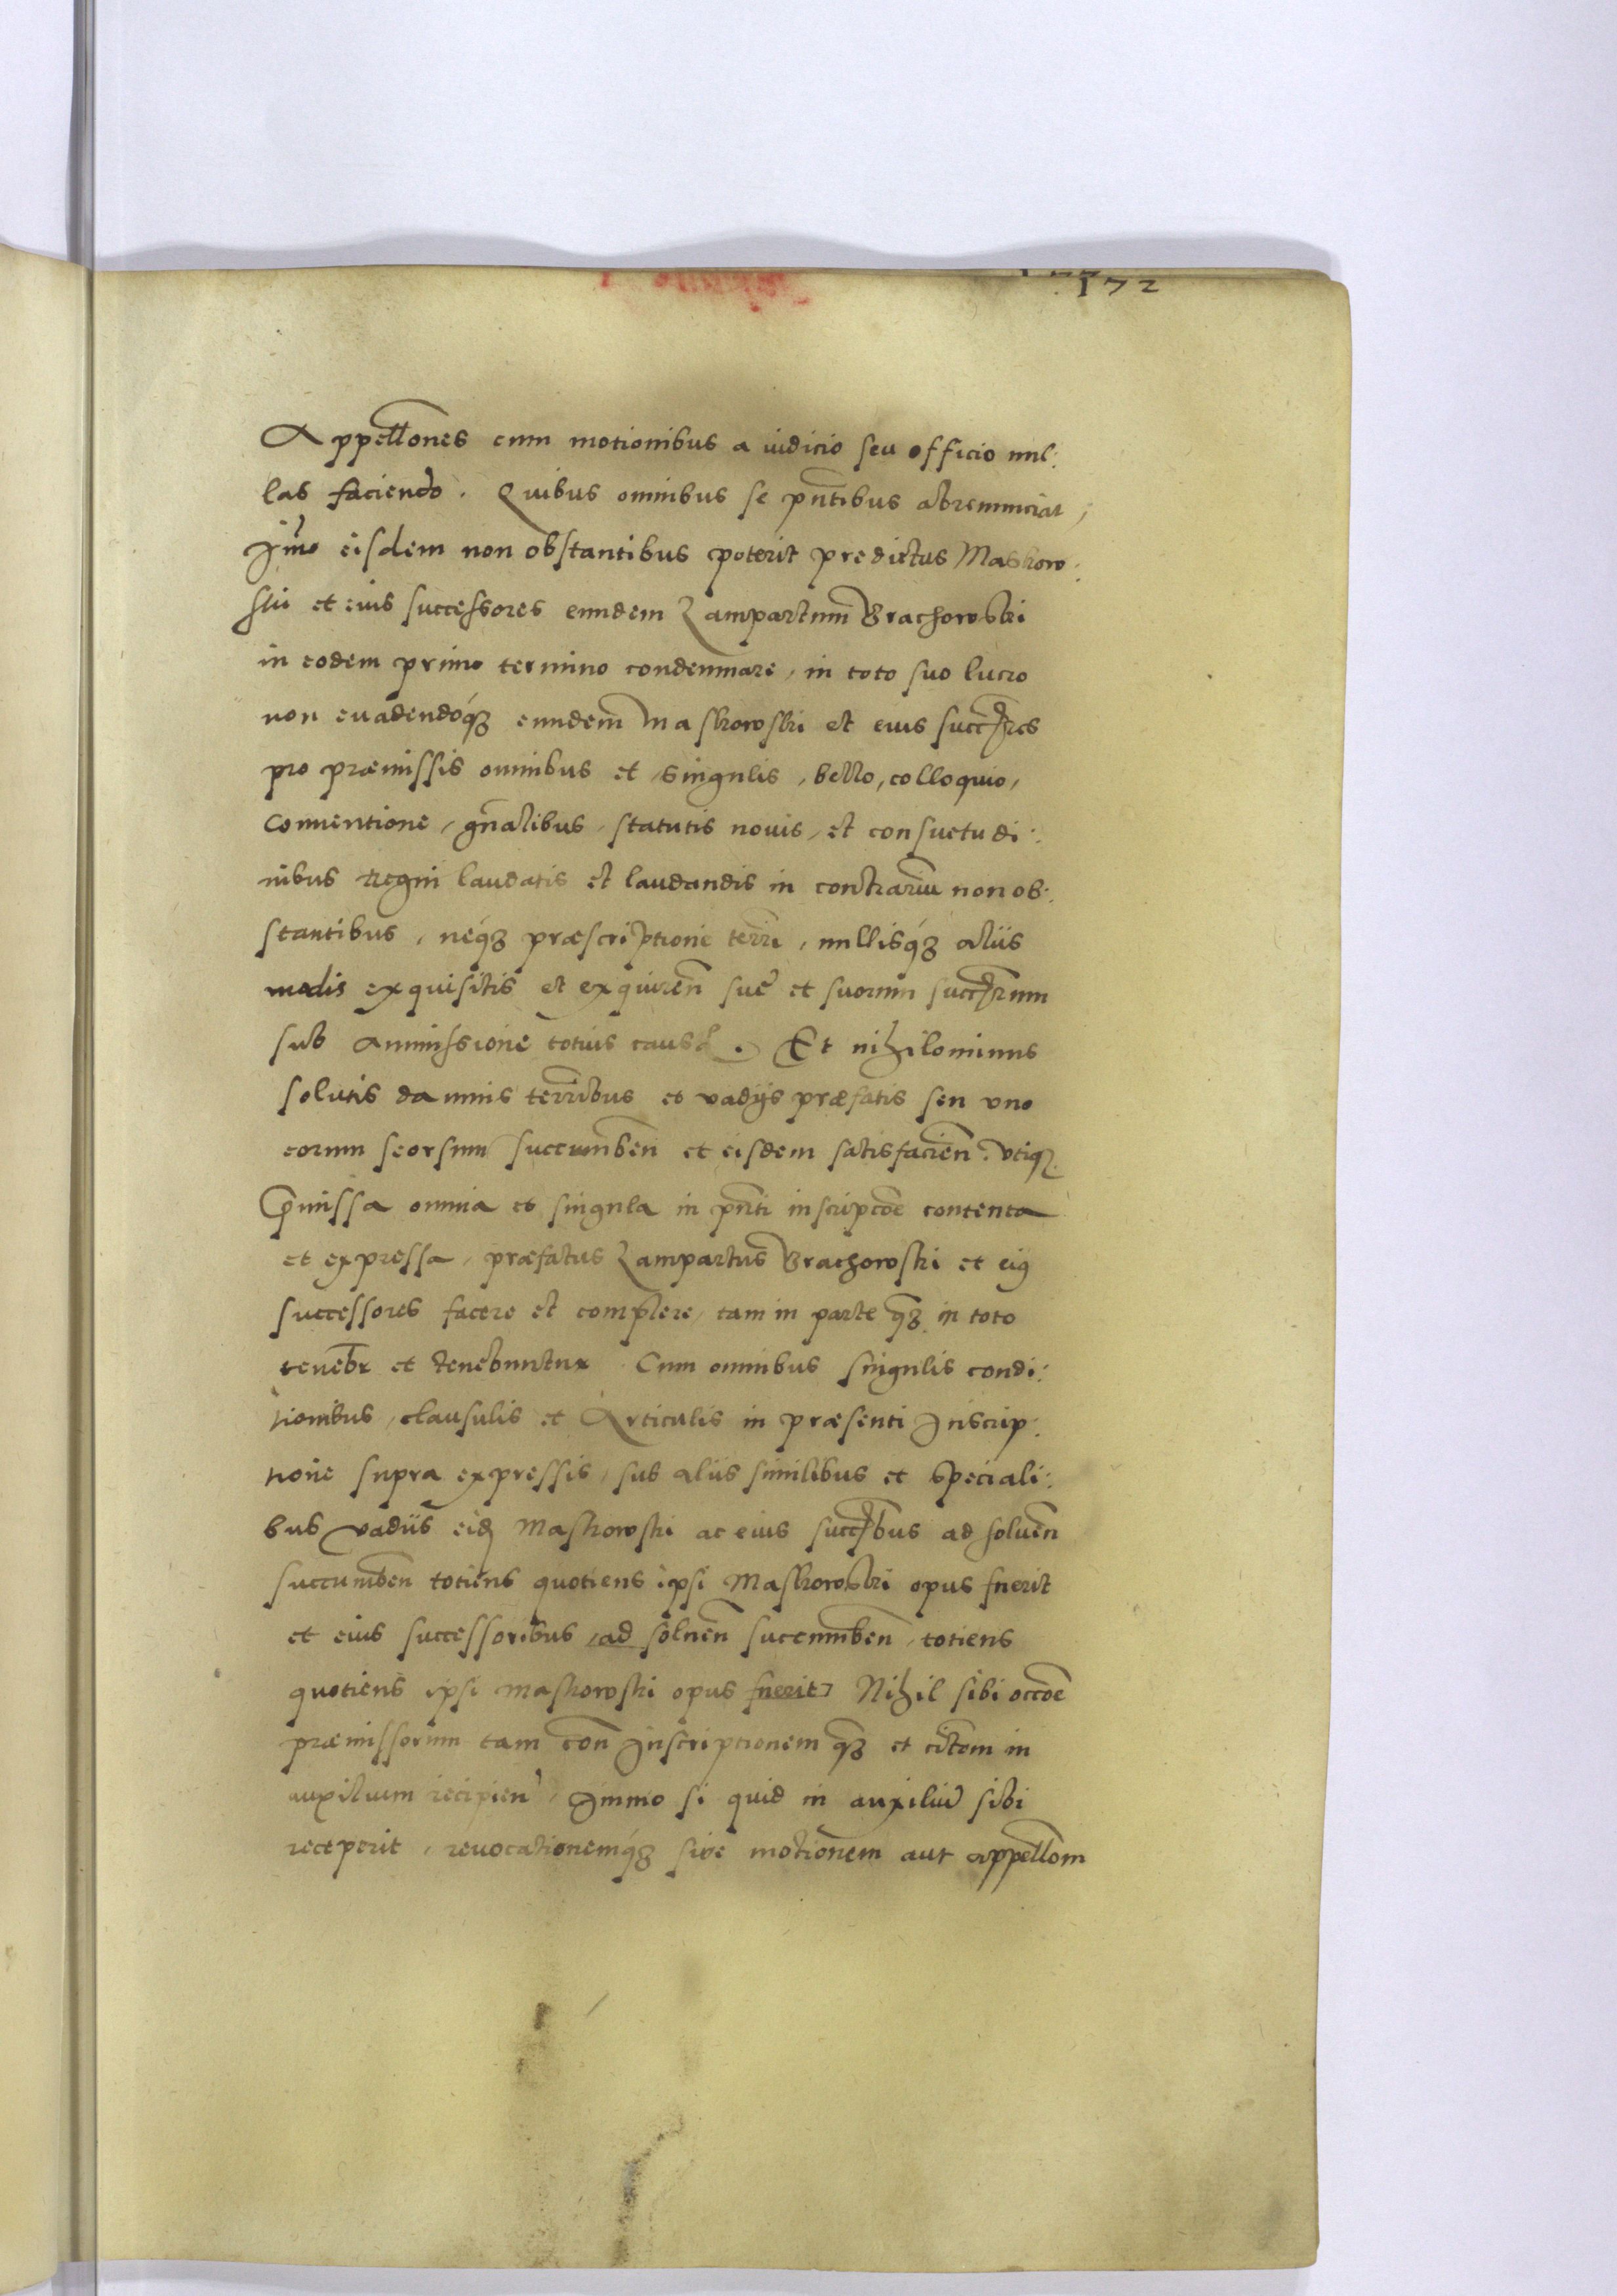 172
Appellones cum motionibus a iudicio seu officio nul:
las faciendo. Quibus omnibus se pntibus abrenunciat,
Imo eisdem non obstantibus poterit predictus Maskow:
ski et eius successores eundem Lampartum Grachowski
in eodem primo termino condemnare, in toto suo lucro
non euadendoq3 eundem Maskowski et eius succres
pro præmissis omnibus et singulis, bello, colloquio,
Conuentione, gnalibus, statutis nouis, et consuetudi:
nibus Regni laudatis et laudandis in contrarium non ob:
stantibus, neq3 præscriptione terri, nullisq3 aliis
modis exquisitis et exquiren sue et suorum succrum
sub ammissione totius causæ. Et nihilominus
solutis damnis terribus et vadijs præfatis seu uno
eorum seorsum succumben et eisdem satisfacien. vtiq3
Pmissa omnia et singula in pnti inscripcoe contenta
et expressa, præfatus Lampartus Grachowski et ei9
successores facere et complere, tam in parte q3 in toto
tenebr et tenebuntur. Cum omnibus singulis condi:
tionibus, clausulis et Articulis in præsenti Inscrip:
tione supra expressis, sub aliis similibus et speciali:
bus vadiis eid Maskowski ac eius succbus ad soluen
succumben totiens quotiens ipsi Maskowski opus fuerit
et eius successoribus, ad soluen succumben, totiens
quotiens ipsi Maskowski opus fuerit] Nihil sibi occoe
præmissorum tam con Inscriptionem q3 et citcom in
auxilium recipien, Immo si quid in auxiliu sibi
receperit, reuocationemq3 siue motionem aut appellom